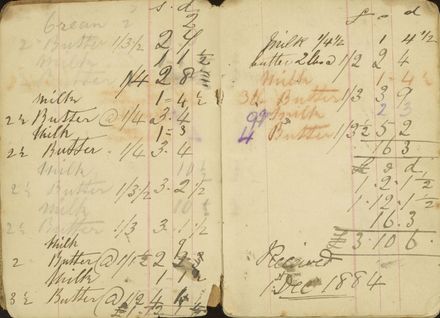 s. d
Cream 2 2
2 Butter 1/3½ 2 7
Milk 1 1½
1/4 2 8
Milk 1 - 4½
2½ Butter @ 1/4 3. 4
Milk 1 - 3
2½ Butter. 1/4 3. 4
Milk 10½
2½ Butter 1/3½ 3. 2½
Milk 10
2½ Butter 1/3 3. 1½
Milk 9
2 Butter @ 1/1½ 2
Milk
3½ Butter @ 1/2 4
£ s d
Milk 1/4½ 1 4½
butter 2 lbs @ 1/2 2 4
Milk 1 - 4½
3 Butter 1/3 3 9
Milk 2 3
4 Butter 1/3½ 5 2
16 3
£ s d
1. 2. 1½
1. 12. 1½
16. 3
3. 10 6.
Received
1 Dec 1884